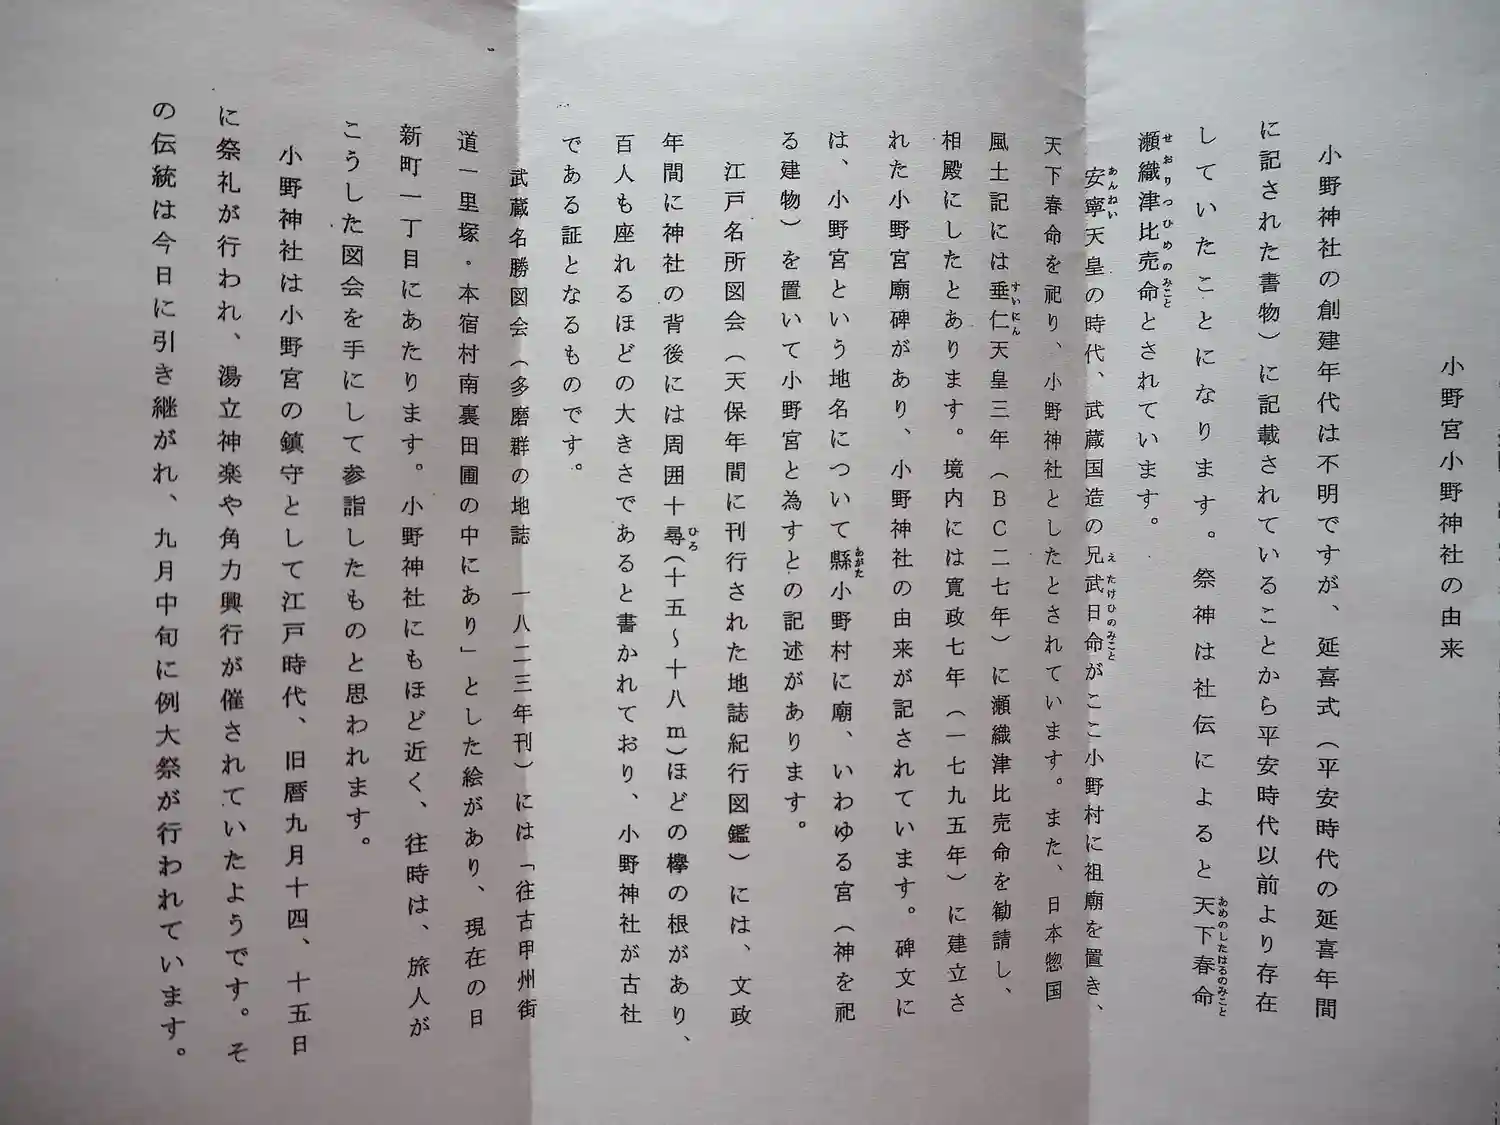 小野宮小野神社の由来
小野神社の創建年代は不明ですが、延喜式（平安時代の延喜年間
に記された書物）に記載されていることから平安時代以前より存在
していたことになります。祭神は社伝によると天下春命
あめのしたはるのみこと
瀬織津比売命とされています。
せおりつひめのみこと
安寧天皇の時代、武蔵国造の兄武日命がここ小野村に祖廟を置き、
あんねい
え たけひのみこと
天下春命を祀り、小野神社としたとされています。また、日本惣国
風土記には垂仁天皇三年（ＢＣ二七年）に瀬織津比売命を勧請し、
すいにん
相殿にしたとあります。境内には寛政七年（一七九五年）に建立さ
れた小野宮廟碑があり、小野神社の由来が記されています。碑文に
は、小野宮という地名について縣小野村に廟、いわゆる宮（神を祀
あがた
る建物）を置いて小野宮と為すとの記述があります。
江戸名所図会（天保年間に刊行された地誌紀行図鑑）には、文政
年間に神社の背後には周囲十尋(十五～十八ｍ)ほどの欅の根があり、
ひろ
百人も座れるほどの大きさであると書かれており、小野神社が古社
である証となるものです。
武蔵名勝図会（多磨群の地誌　一八二三年刊）には「往古甲州街
道一里塚・本宿村南裏田圃の中にあり」とした絵があり、現在の日
新町一丁目にあたります。小野神社にもほど近く、往時は、旅人が
こうした図会を手にして参詣したものと思われます。
小野神社は小野宮の鎮守として江戸時代、旧暦九月十四、十五日
に祭礼が行われ、湯立神楽や角力興行が催されていたようです。そ
の伝統は今日に引き継がれ、九月中旬に例大祭が行われています。